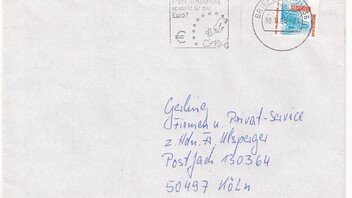 Euro?
€
BRIEF
Gerling
Firmen u. Privat-Service
z. Hdn. Fr. Ulsperger
Postfach 130364
50497 Köln